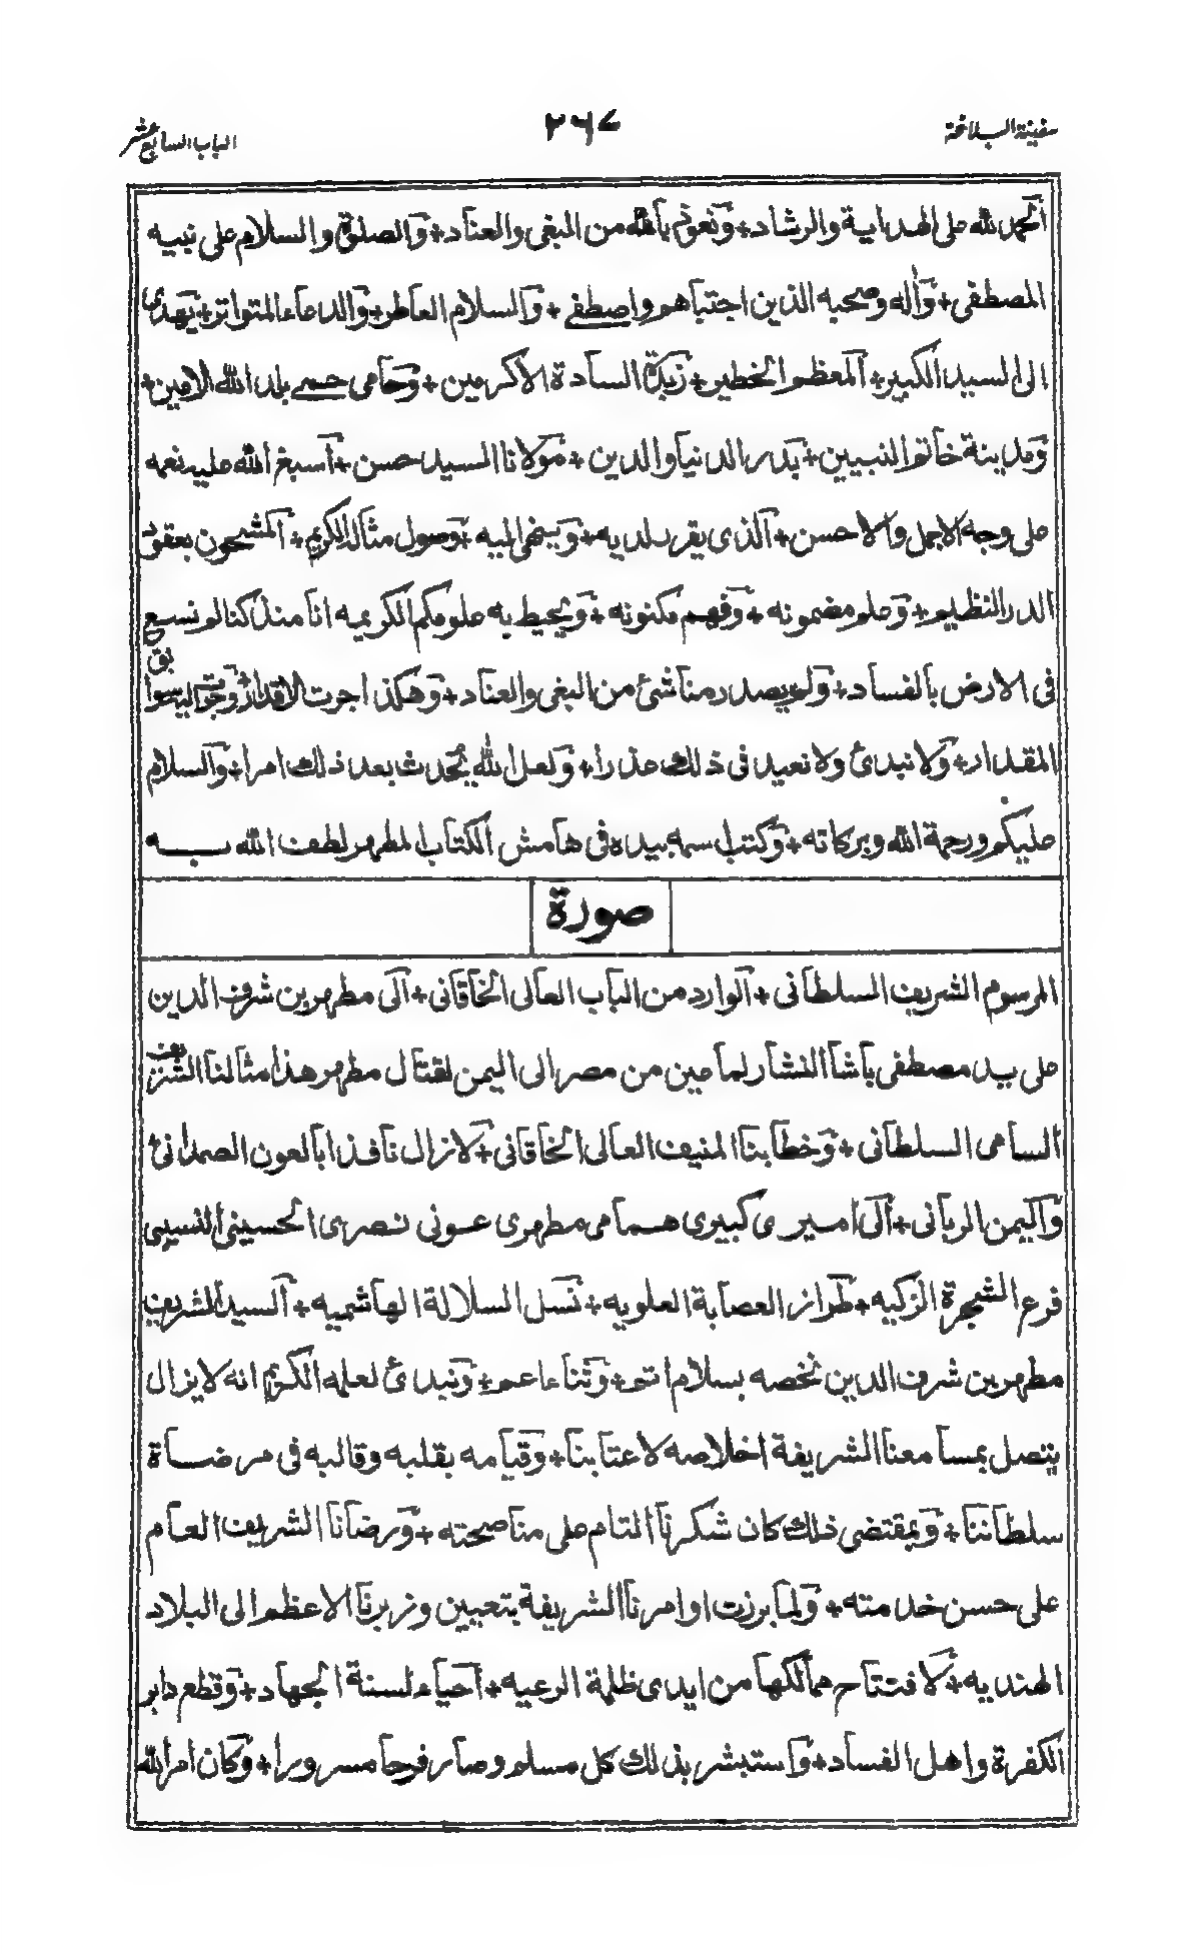 سفينة البلاغة
٢٦٧
الباب السابع عشر
الحمد لله على الهداية والرشاد + ونعوذ بالله من البغي والعناد + والصلوة والسلام على نبيه
المصطفى + وآله وصحبه الذين اجتباهم واصطفى + والسلام العاطر + والدعاء المتواتر + يهدى
الى السيد الكبير + المعظم الخطير + زبدة السادة الاكرمين + وحامى حمى بلد الله الامين +
ومدينة خاتم النبيين + بدر الدنيا والدين + مولانا السيد حسن + أسبغ الله عليه نعمه
على وجه الاجمل والاحسن + الذى يقر لديه + وينهى اليه + وصول مثاله الكريم + المشحون بعقود
الدر النظيم + وعلم مضمونه + وفهم مكنونه + ويحيط به علومكم الكريمه انا منذ كنا لم نسع
فى الارض بالفساد + ولم يصدر منا شئ من البغى والعناد + وهكذا جرت الاقدار + وجواليه سوابق
المقدار + ولا نبدئ ولا نعيد فى ذلك عذرا + ولعل الله يحدث بعد ذلك امرا + والسلام
عليكم ورحمة الله وبركاته + وكتب اسمه بيده فى هامش الكتاب المطهر لطف الله بـــه
صورة
المرسوم الشريف السلطانى + الوارد من الباب العالى الخاقانى + الى مطهر بن شرف الدين
على يد مصطفى باشا النشار لما عين من مصر الى اليمن لقتال مطهر هذا مثالنا الشريف
السامى السلطانى + وخطابنا المنيف العالى الخاقانى + لا زال نافذا بالعون الصمدانى +
واليمن الربانى + الى اميرى كبيرى همامى مطهرى عونى نصرى الحسينى النسيبى
فرع الشجرة الزكيه + طراز العصابة العلويه + نسل السلالة الهاشميه + السيد الشريف
مطهر بن شرف الدين نخصه بسلام اتم + وثناء اعم + ونبدئ لعلمه الكريم انه لا يزال
يتصل بمسامعنا الشريفة اخلاصه لاعتابنا + وقيامه بقلبه وقالبه فى مرضاة
سلطاننا + وبمقتضى ذلك كان شكرنا التام على مناصحته + ورضانا الشريف العام
على حسن خدمته + ولما برزت اوامرنا الشريفة بتعيين وزيرنا الاعظم الى البلاد
الهنديه + لافتتاح ممالكها من ايدى ظلمة الرعيه + احياء لسنة الجهاد + وقطع دابر
الكفرة واهل الفساد + واستبشر بذلك كل مسلم وصار فرحا مسرورا + وكان امر الله